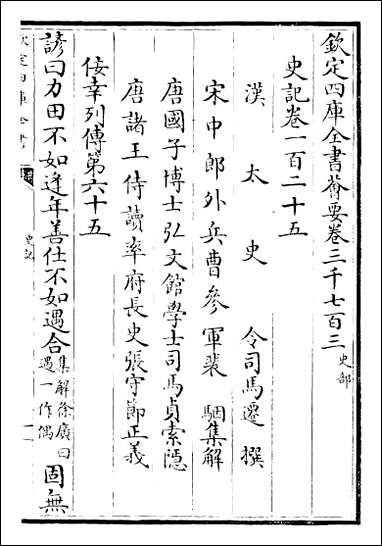 欽定四庫全書薈要卷三千七百三 史部
史記卷一百二十五
漢太史令司馬遷撰
宋中郎外兵曹參軍裴駰集解
唐國子博士弘文館學士司馬貞索隱
唐諸王侍讀率府長史張守節正義
佞幸列傳第六十五
諺曰力田不如逢年善仕不如遇合 集解徐廣曰遇一作偶 固無
欽定四庫全書
史記